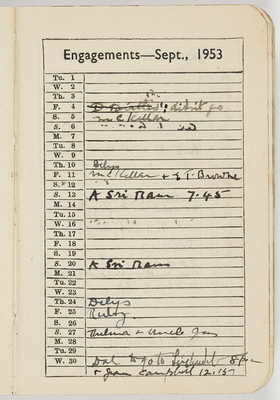 Engagements—Sept., 1953
Tu. 1
W. 2
Th. 3
F. 4 didn't go
S. 5 McKellar
S. 6
M. 7
Tu. 8
W. 9
Th. 10 Delys
F. 11 McKellar + Browne
S. 12
S. 13 A Sri Ram 7.45
M. 14
Tu. 15
W. 16
Th. 17
F. 18
S. 19
S. 20 A Sri Ram
M. 21
Tu. 22
W. 23
Th. 24 Delys
F. 25 Ruby
S. 26
S. 27 Thelma + Uncle Jim
M. 28
Tu. 29
W. 30 to go to
+ Jean Campbell 12.15